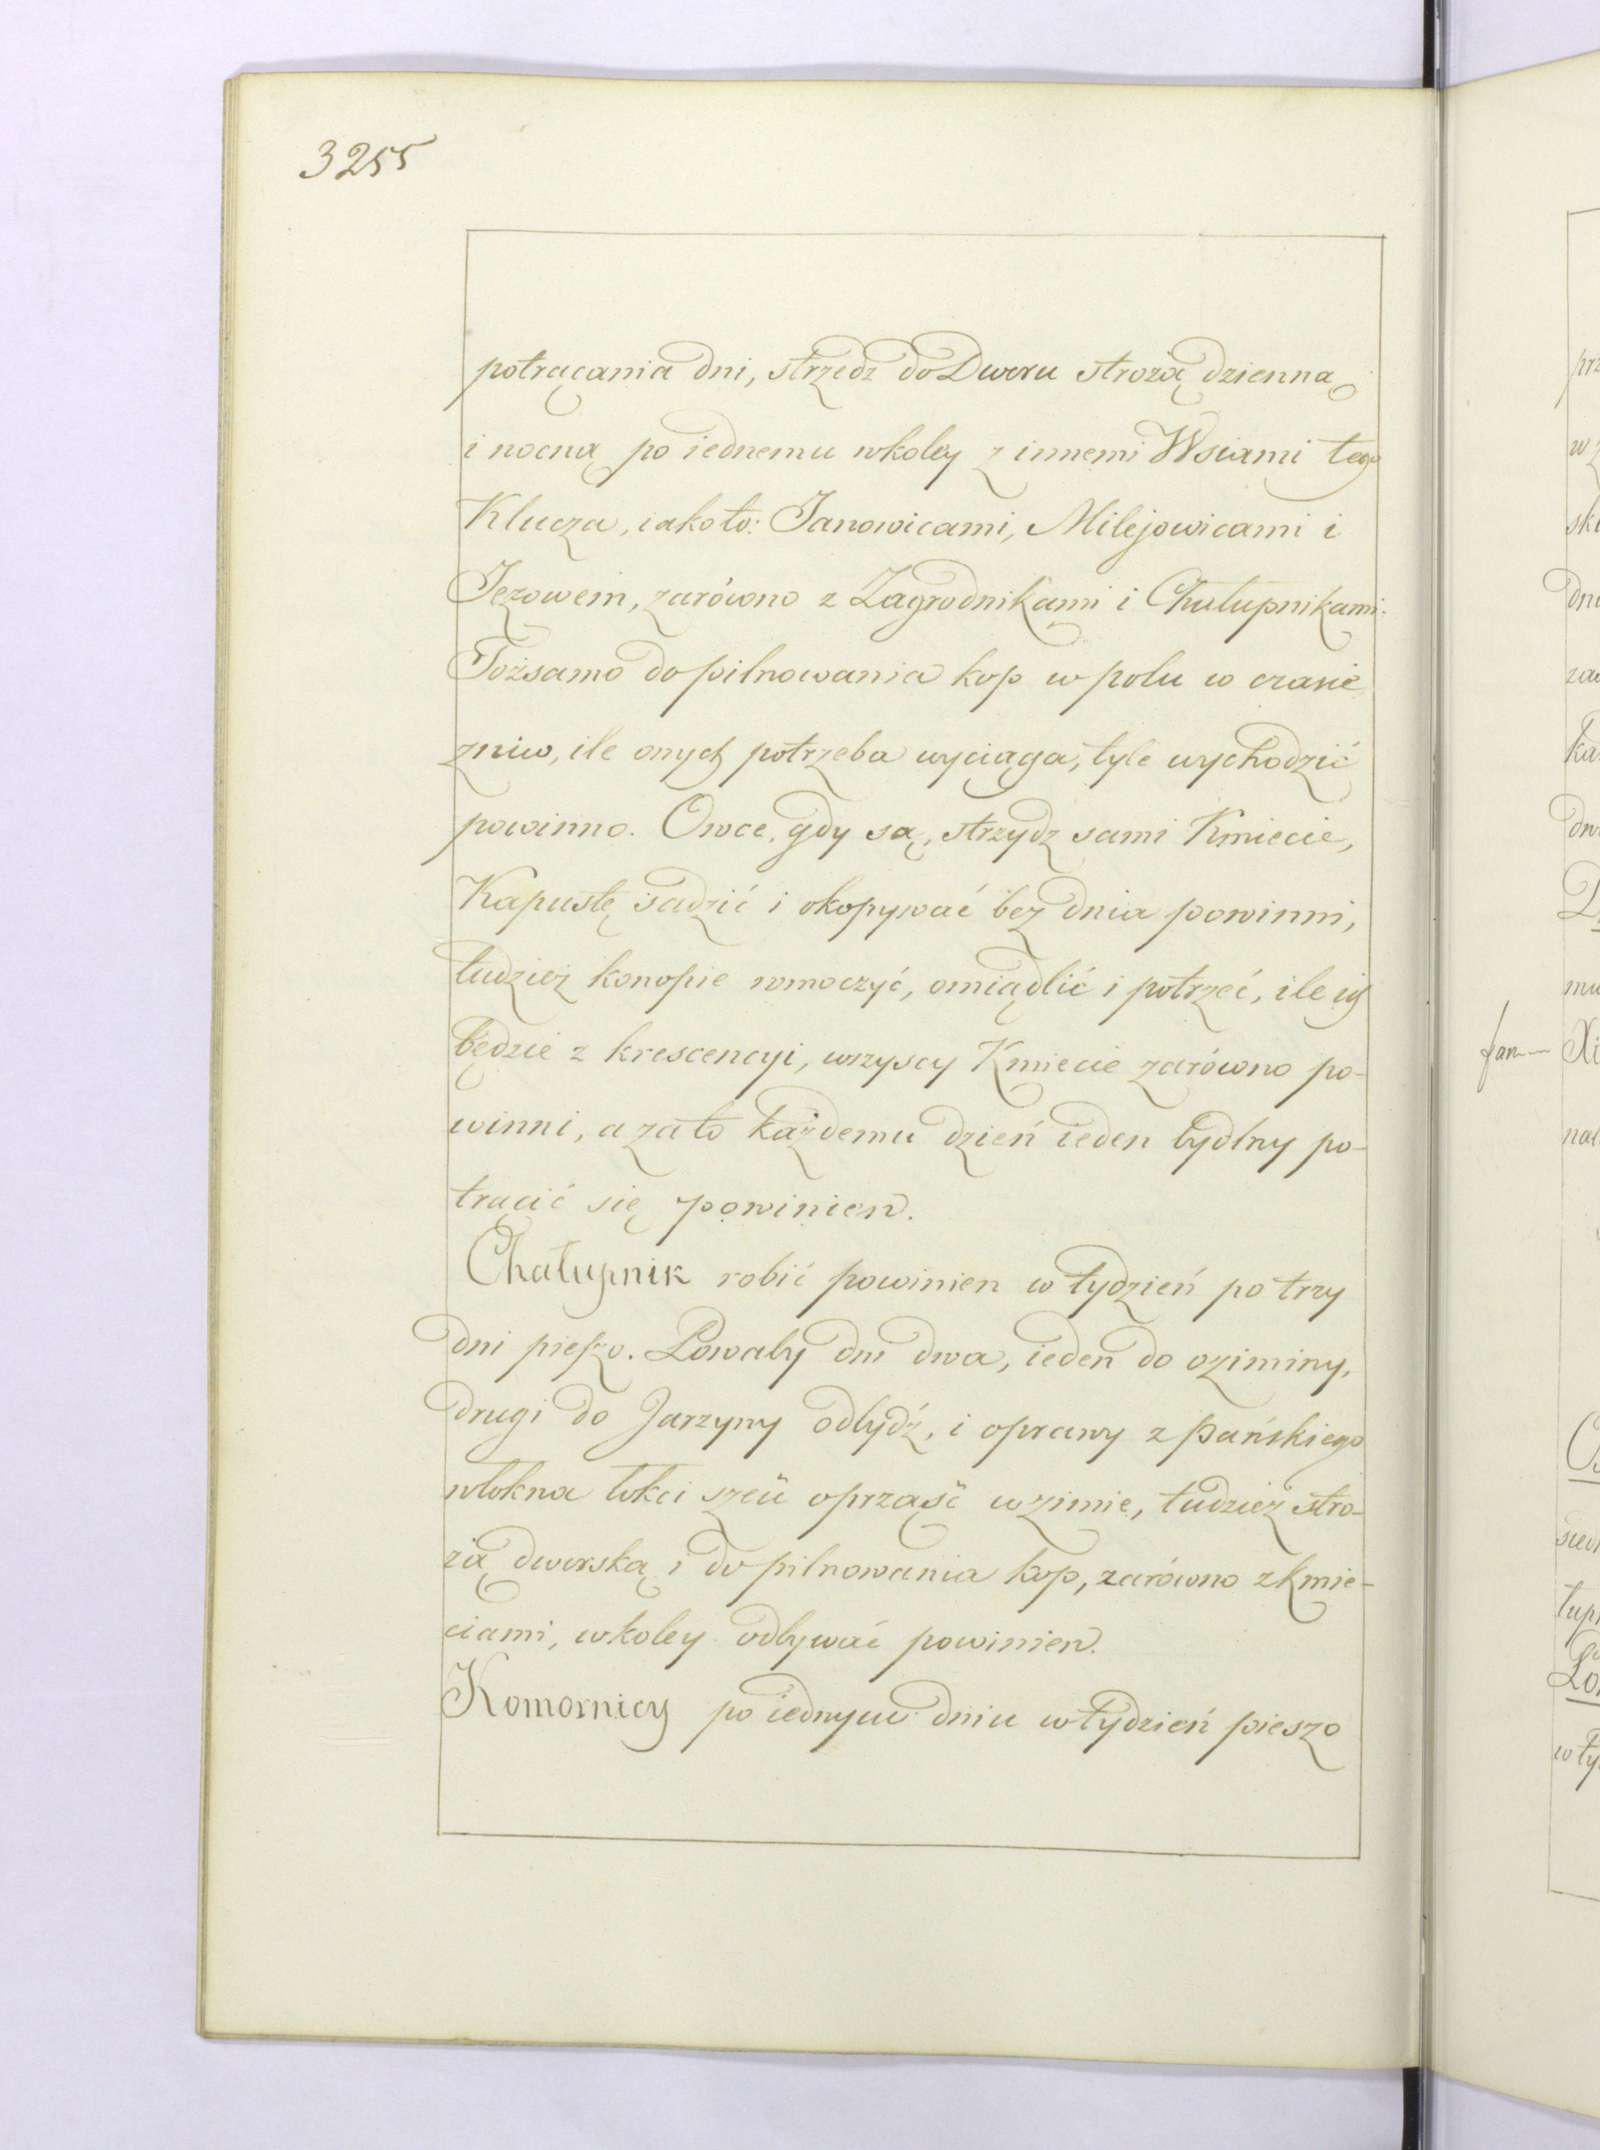 3255
potrącania dni, strzedz do Dworu strożą dzienną
i nocną po iednemu wkoley z innemi Wsiami tego
Klucza, iakoto: Janowicami, Milejowicami i
Jeżowem, zarówno z Zagrodnikami i Chałupnikami.
Tożsamo do pilnowania kop w polu w czasie
żniw, ile onych potrzeba wyciąga, tyle wychodzić
powinno. Owce, gdy są, strzydz sami Kmiecie,
Kapustę sadzić i okopywać bez dnia powinni,
tudzież konopie wmoczyć, omiądlić i potrzeć, ile ich
będzie z krescencyi, wszyscy Kmiecie zarówno po-
winni, a zato każdemu dzień ieden bydlny po-
trącić się powinien.
Chałupnik robić powinien w tydzień po trzy
dni pieszo. Powaby dni dwa, ieden do oziminy,
drugi do Jarzyny odbydź, i oprawy z pańskiego
włokna łokci sześć oprząść w zimie, tudzież stro-
żą dworską i do pilnowania kop, zarówno z Kmie-
ciami, w koley odbywać powinien.
Komornicy po iednym dniu w tydzień pieszo